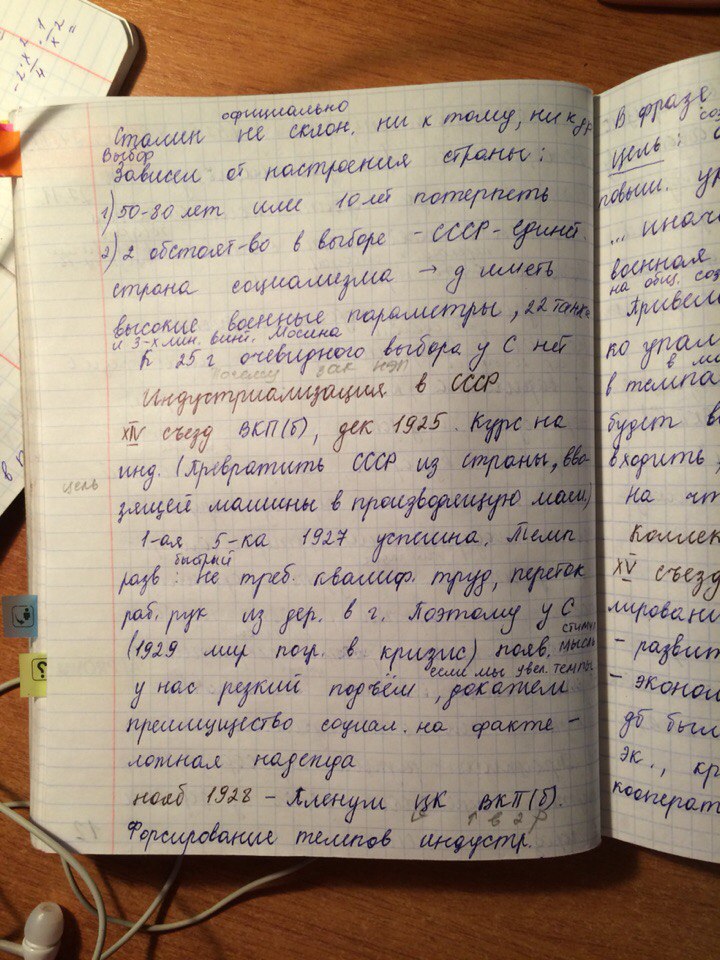 официально
Сталин не склон. ни к тому, ни к др
Выбор
Зависел от настроения страны:
1) 50-80 лет или 10 лет потерпеть
2) 2 обстоят-во в выборе - СССР - единст.
страна социализма → д иметь
высокие военные параметры, 22 танка
и 3-х лин. винт. Мосина
К 25 г очевидного выбора у С нет
почему зак НЭП
Индустриализация в СССР
XIV съезд ВКП(б), дек 1925. Курс на
инд. (Превратить СССР из страны, вво
цель
зящей машины в производящую маш)
1-ая 5-ка 1927 успешна. Темп
быстрый
разв : не треб. квалиф. труд, переток
раб. рук из дер. в г. Поэтому у С
стимул
(1929 мир погр. в кризис) появ. мысль
если мы увел. темпы
у нас резкий подъём, докажем
преимущество социал. на факте -
ложная надежда
нояб 1928 - Пленум ЦК ВКП(б).
↑ в 2 р
Форсирование темпов индустр.
В фразе
цель:
повыш. ур
... инач
военная
на общ. соц
Привело
ко упал
в темпа
будет в
входить,
на чт
Коллек
XV съезд
лировани
- развит
- эконом
дб был
эк., кр
кооперат